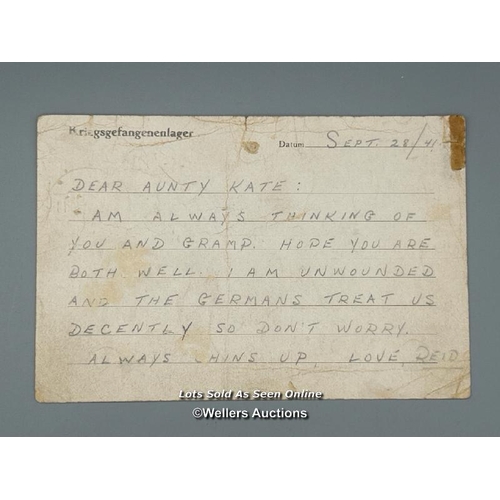 Kriegsgefangenenlager
Datum SEPT. 28/41
DEAR AUNTY KATE:
AM ALWAYS THINKING OF
YOU AND GRAMP. HOPE YOU ARE
BOTH WELL. I AM UNWOUNDED
AND THE GERMANS TREAT US
DECENTLY SO DON'T WORRY.
ALWAYS CHINS UP, LOVE, REID
Lots Sold As Seen Online
©Wellers Auctions